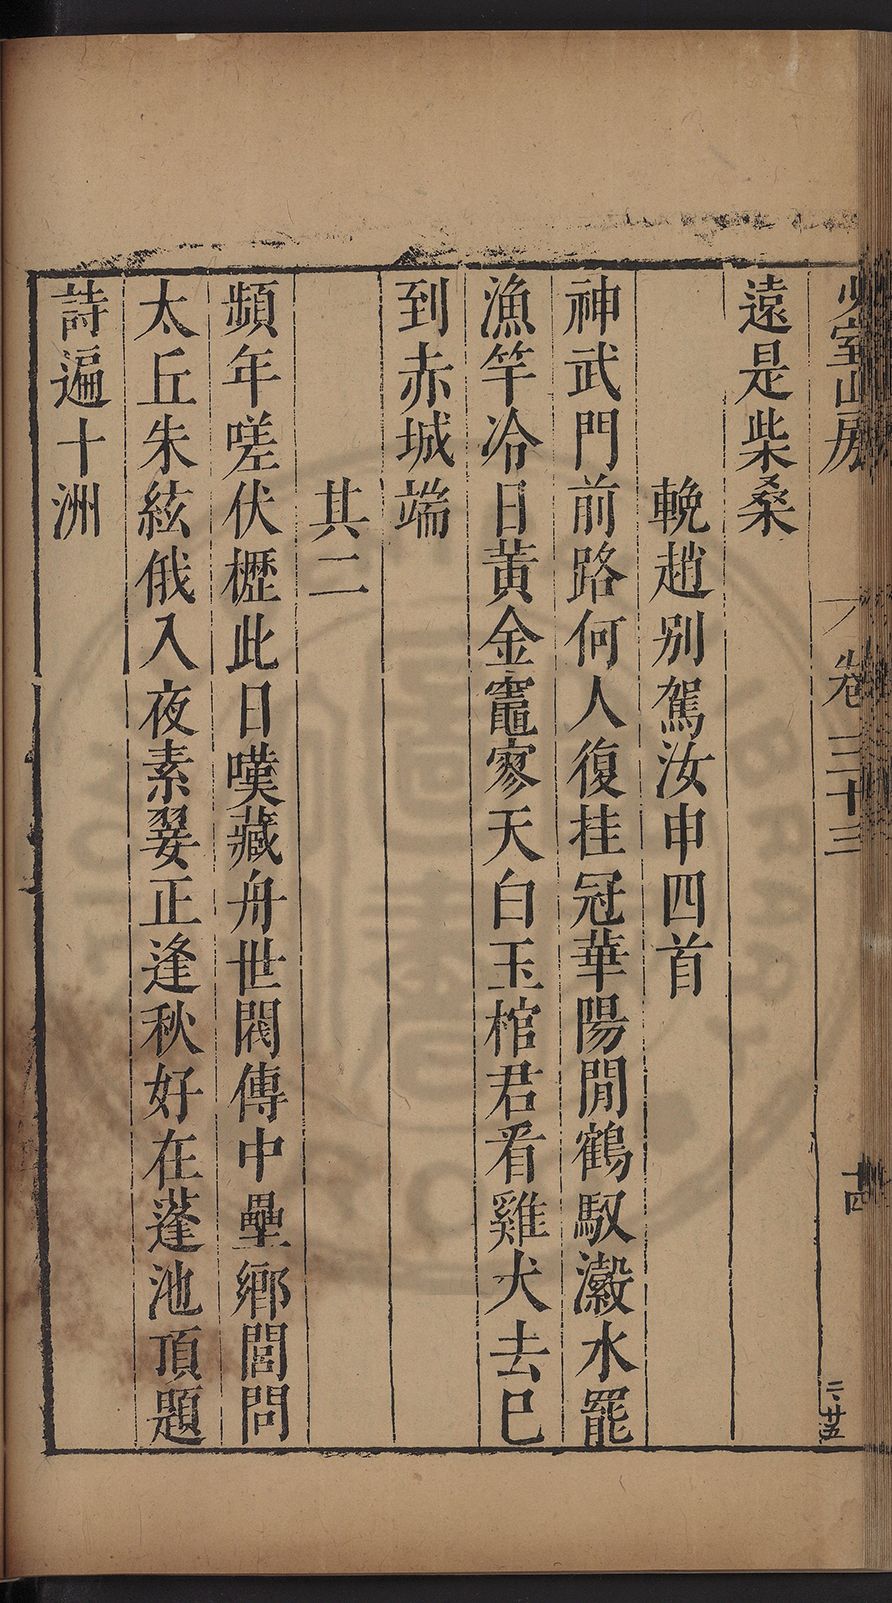 少室山房
卷三十三
十四
二、廿五
遠是柴桑
輓趙别駕汝申四首
神武門前路何人復挂冠華陽閒鶴馭瀫水罷
漁竿冷日黃金竈寥天白玉棺君看雞犬去巳
到赤城端
其二
頻年嗟伏櫪此日嘆藏舟世閥傳中壘鄉閭問
太丘朱絃俄入夜素翣正逢秋好在蓬池頂題
詩遍十洲